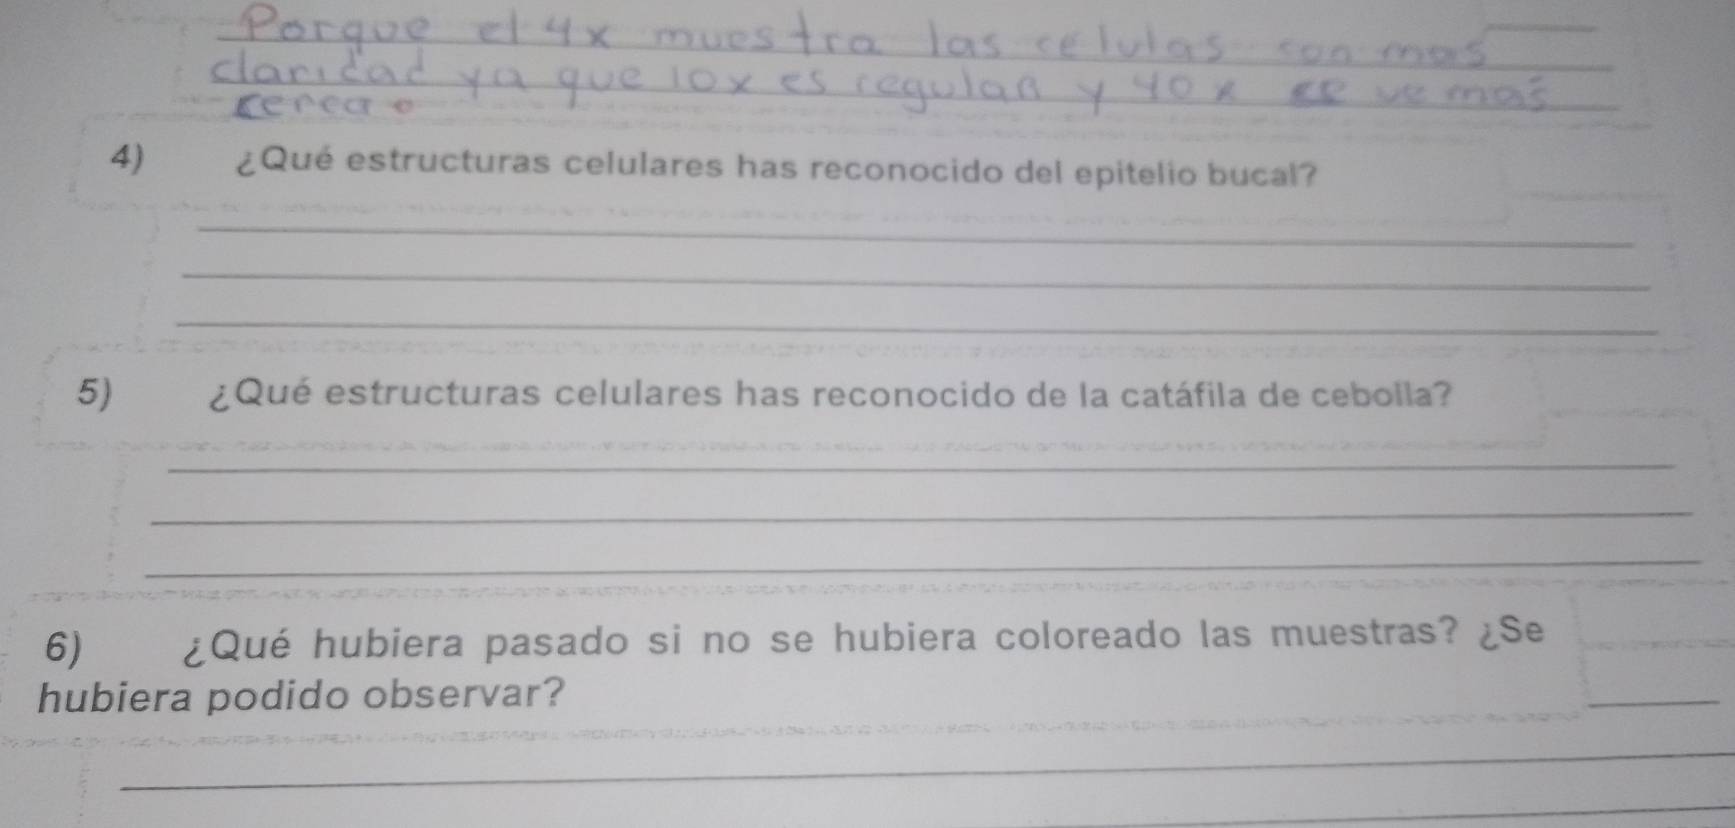 Porque el 4x muestra las celulas son mas
claridad ya que 10x es regular y 40x se ve mas
cerca.
4) ¿Qué estructuras celulares has reconocido del epitelio bucal?
5) ¿Qué estructuras celulares has reconocido de la catáfila de cebolla?
6) ¿Qué hubiera pasado si no se hubiera coloreado las muestras? ¿Se
hubiera podido observar?